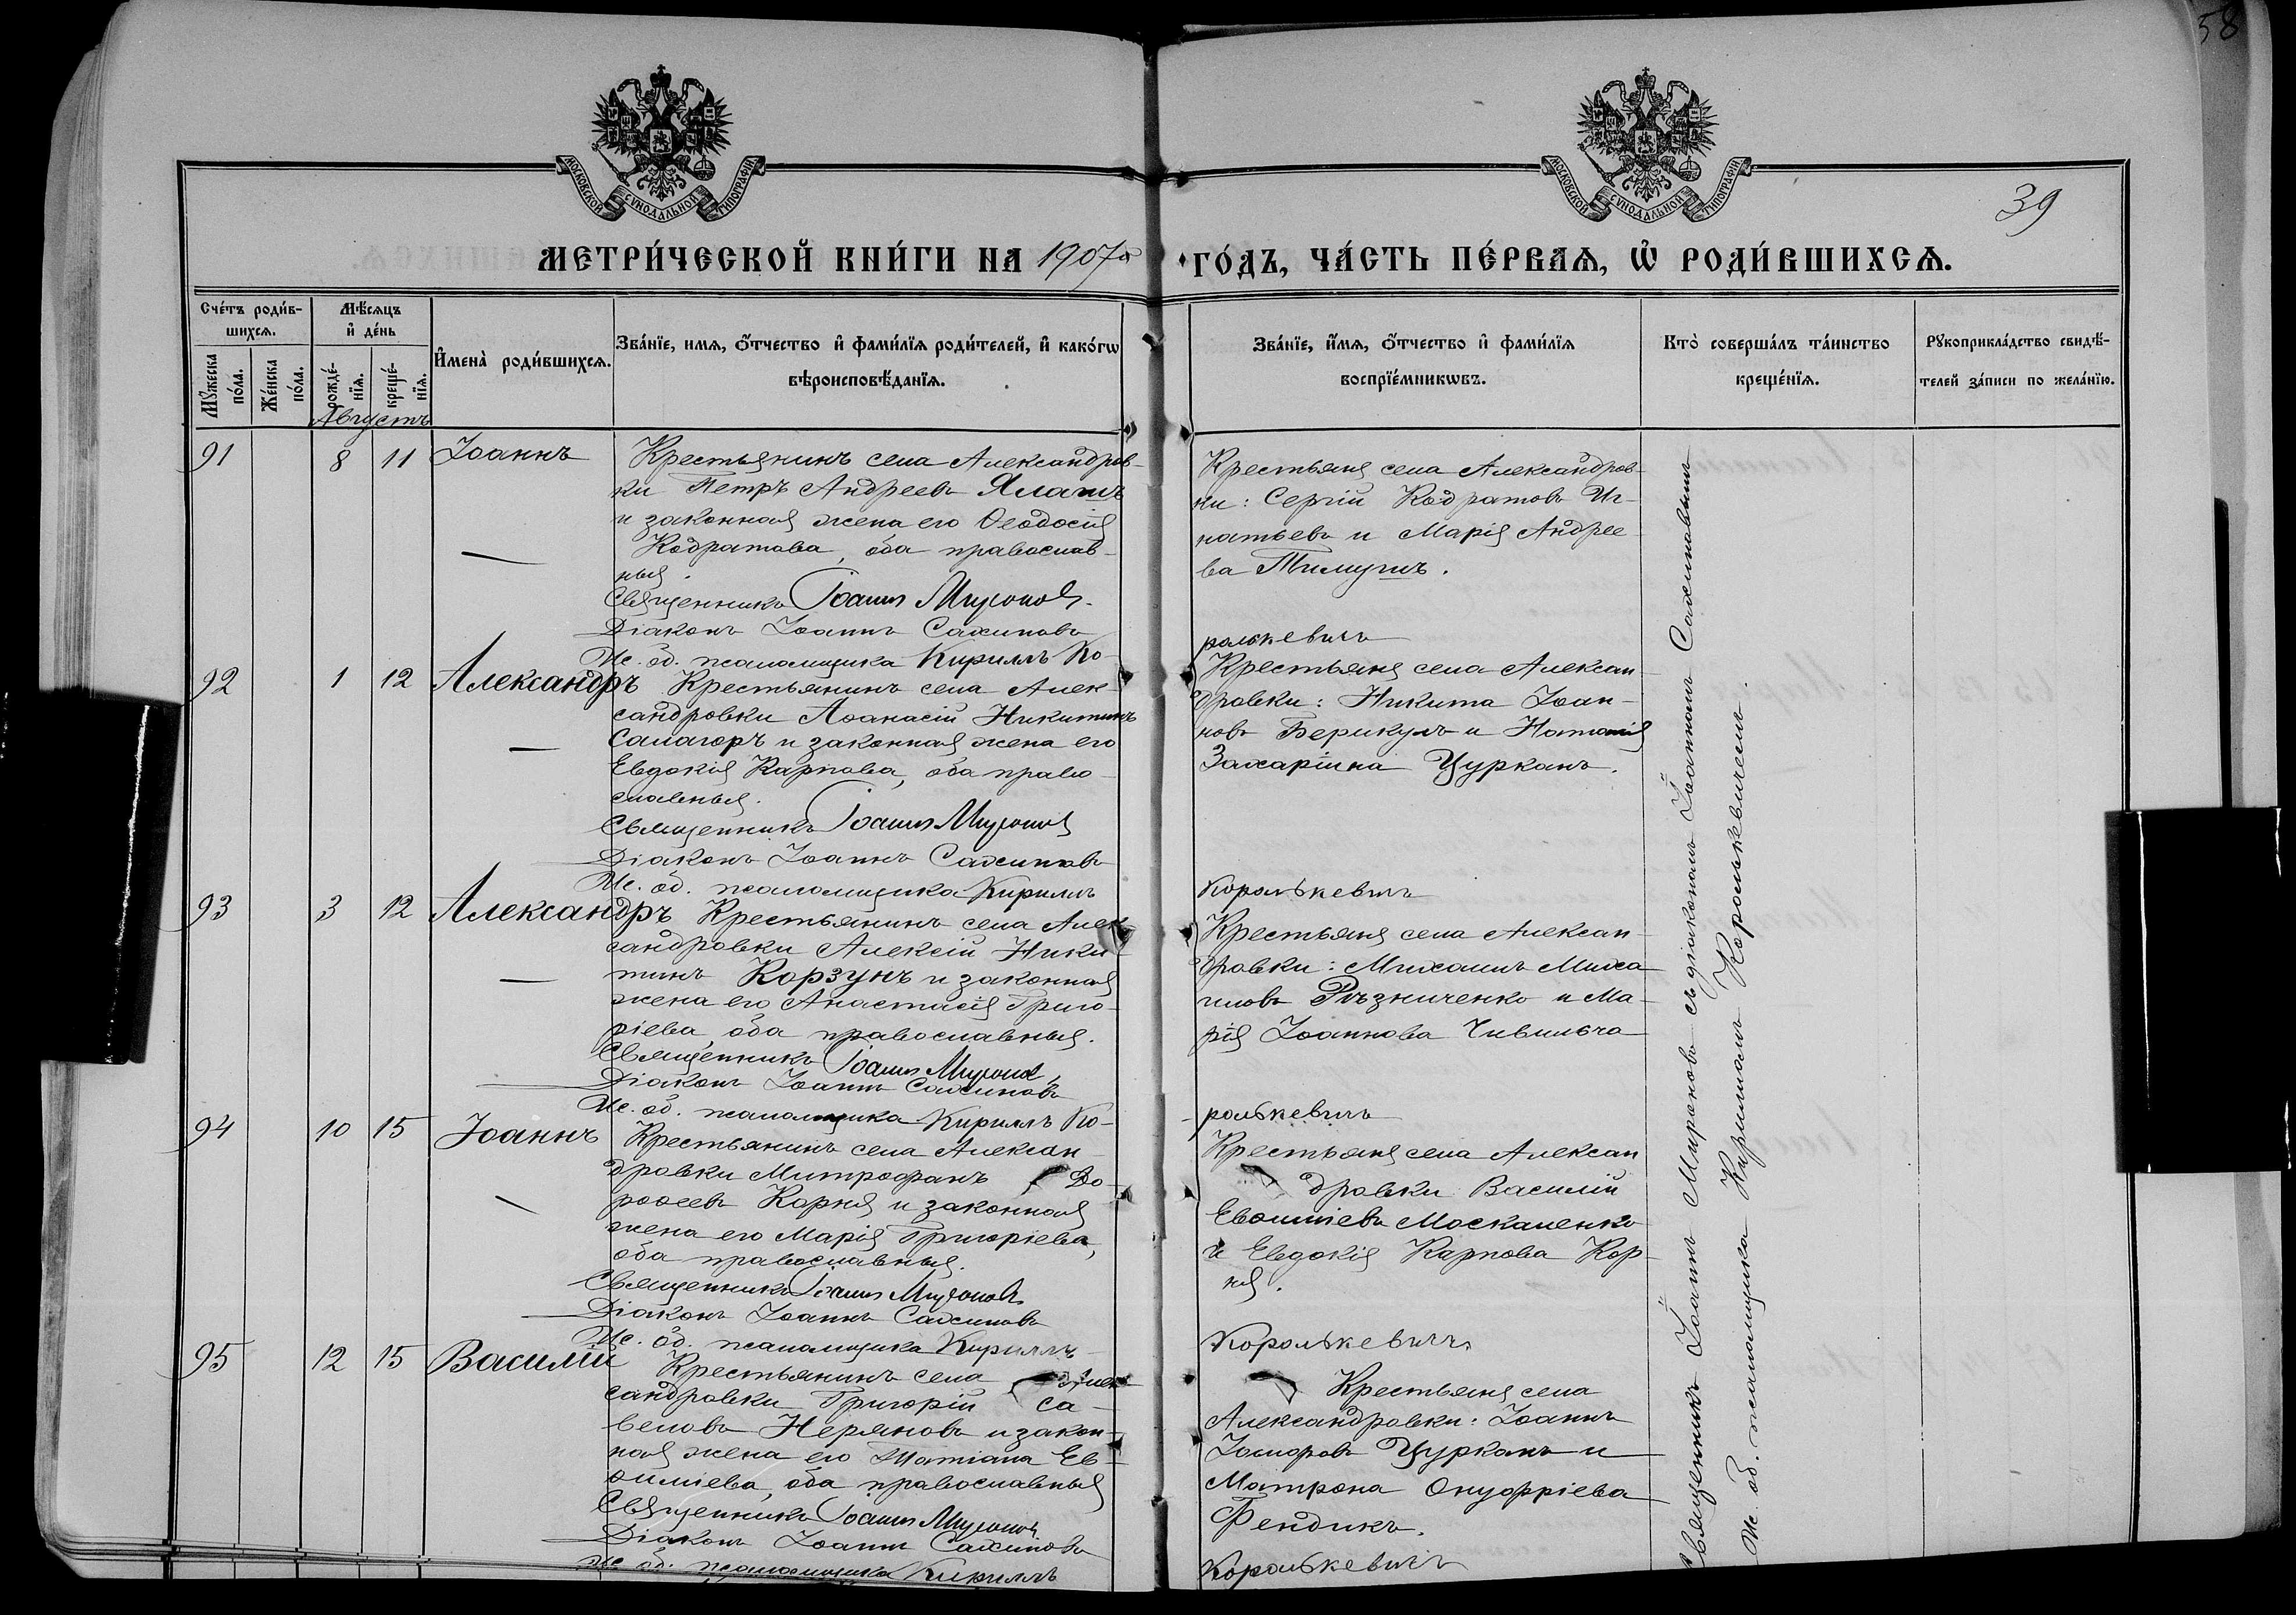 58
39
МОСКОВСКОЙ СѴНОДАЛЬНОЙ ТИПОГРАФІИ
МОСКОВСКОЙ СѴНОДАЛЬНОЙ ТИПОГРАФІИ
МЕТРИ́ЧЕСКОЙ КНИ́ГИ НА 1907й
ГО́ДЪ, ЧА́СТЬ ПЕ́РВАѦ, Ѡ҆ РОДИ́ВШИХСѦ.
Сче́тъ роди́в-
шихсѧ.
Мꙋ́жеска по́ла.
Же́нска по́ла.
Мѣ́сѧцъ
и҆ де́нь
рожде́-нїѧ.
креще́-нїѧ.
Августъ
И҆мена̀ роди́вшихсѧ.
Зва́нїе, имѧ, ѻ҆́тчество и҆ фами́лїѧ роди́телей, и҆ како́гѡ
вѣроисповѣ́данїѧ.
Зва́нїе, и҆́мѧ, ѻ҆́тчество и҆ фами́лїѧ
воспрїе́мникѡвъ.
Кто̀ соверша́лъ та́инство
креще́нїѧ.
Рꙋкоприкла́дство свидѣ́-
телей за́писи по жела́нїю.
91 8 11 Іоаннъ
Крестьянинъ села Александров-
ки Петръ Андреевъ Ялангъ
и законная жена его Ѳеодосія
Кодратова, оба православ-
ныя.
Священникъ Іоаннъ Мироновъ.
Діаконъ Іоаннъ Сахиновъ
Ис. об. псаломщика Кирилъ Ко-
Крестьяне села Александров-
ки: Сергій Кодратовъ Иг-
натьевъ и Марія Андрее-
ва
ролькевичъ
92 1 12 Александръ
Крестьянинъ села Алек-
сандровки Аѳанасій Никитинъ
Салагоръ и законная жена его
Евдокія Карпова, оба право-
славныя.
Священникъ Іоаннъ Мироновъ
Діаконъ Іоаннъ Сахиновъ
Ис. об. псаломщика Кирилъ
Крестьяне села Алексан-
дровки: Никита Іоан-
новъ Берикулъ и Наталія
Захаріина Цурканъ.
Королькевичъ
93 3 12 Александръ
Крестьянинъ села Алек-
сандровки Алексій Ники-
тинъ Корзунъ и законная
жена его Анастасія Григо-
ріева, оба православныя.
Священникъ Іоаннъ Мироновъ
Діаконъ Іоаннъ Сахиновъ
Ис. об. псаломщика Кирилъ Ко-
Крестьяне села Алексан-
дровки: Михаилъ Миха-
иловъ Рѣзниченко и Ма-
рія Іоаннова Чивильча
ролькевичъ
94 10 15 Іоаннъ
Крестьянинъ села Алексан-
дровки Митрофанъ До-
роѳеевъ Корня и законная
жена его Марія Григоріева,
оба православныя.
Священникъ Іоаннъ Мироновъ
Діаконъ Іоаннъ Сахиновъ
Ис. об. псаломщика Кирилъ
Крестьяне села Алексан-
дровки Василій
Евѳиміевъ Москаленко
и Евдокія Карпова Кор-
ня.
Королькевичъ
95 12 15 Василій
Крестьянинъ села Алек-
сандровки Григорій Са-
веловъ Неряновъ и закон-
ная жена его Татіана Ев-
ѳиміева, оба православныя
Священникъ Іоаннъ Мироновъ
Діаконъ Іоаннъ Сахиновъ
Ис. об. псаломщика Кирилъ
Крестьяне села
Александровки: Іоаннъ
Цурканъ и
Матрона Онуфріева
Фендикъ.
Королькевичъ
Священникъ Іоаннъ Мироновъ съ діакономъ Іоанномъ Сахиновымъ
Ис. об. псаломщика Кириломъ Королькевичемъ.